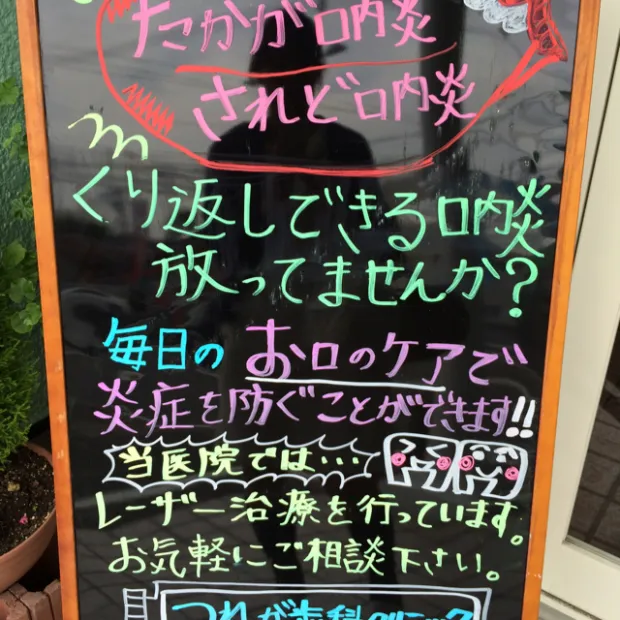 たかが口内炎
されど口内炎
くり返しできる口内炎
放ってませんか?
毎日のお口のケアで
炎症を防ぐことができます!!
当医院では…
レーザー治療を行っています。
お気軽にご相談下さい。
つれが歯科クリニック